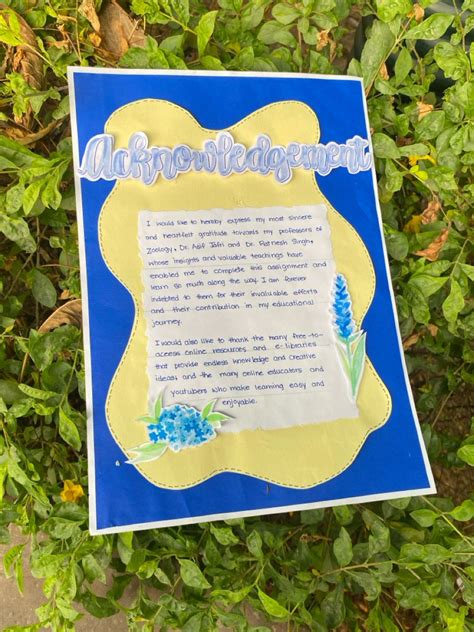 Acknowledgement
I would like to hereby express my most sincere
and heartfelt gratitude towards my professors of
Zoology, Dr. Asif Jafri and Dr. Ratnesh Singh,
whose insights and valuable teachings have
enabled me to complete this assignment and
learn so much along the way. I am forever
indebted to them for their invaluable efforts
and their contribution in my educational
journey.
I would also like to thank the many free-to-
access online resources and e-libraries
that provide endless knowledge and creative
ideas and the many online educators and
youtubers who make learning easy and
enjoyable.